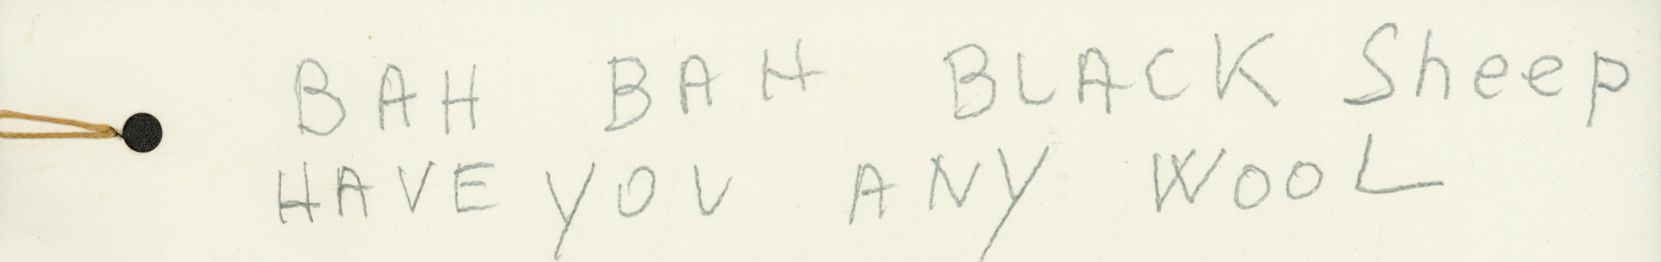 BAH BAH BLACK Sheep
HAVE YOU ANY WOOL